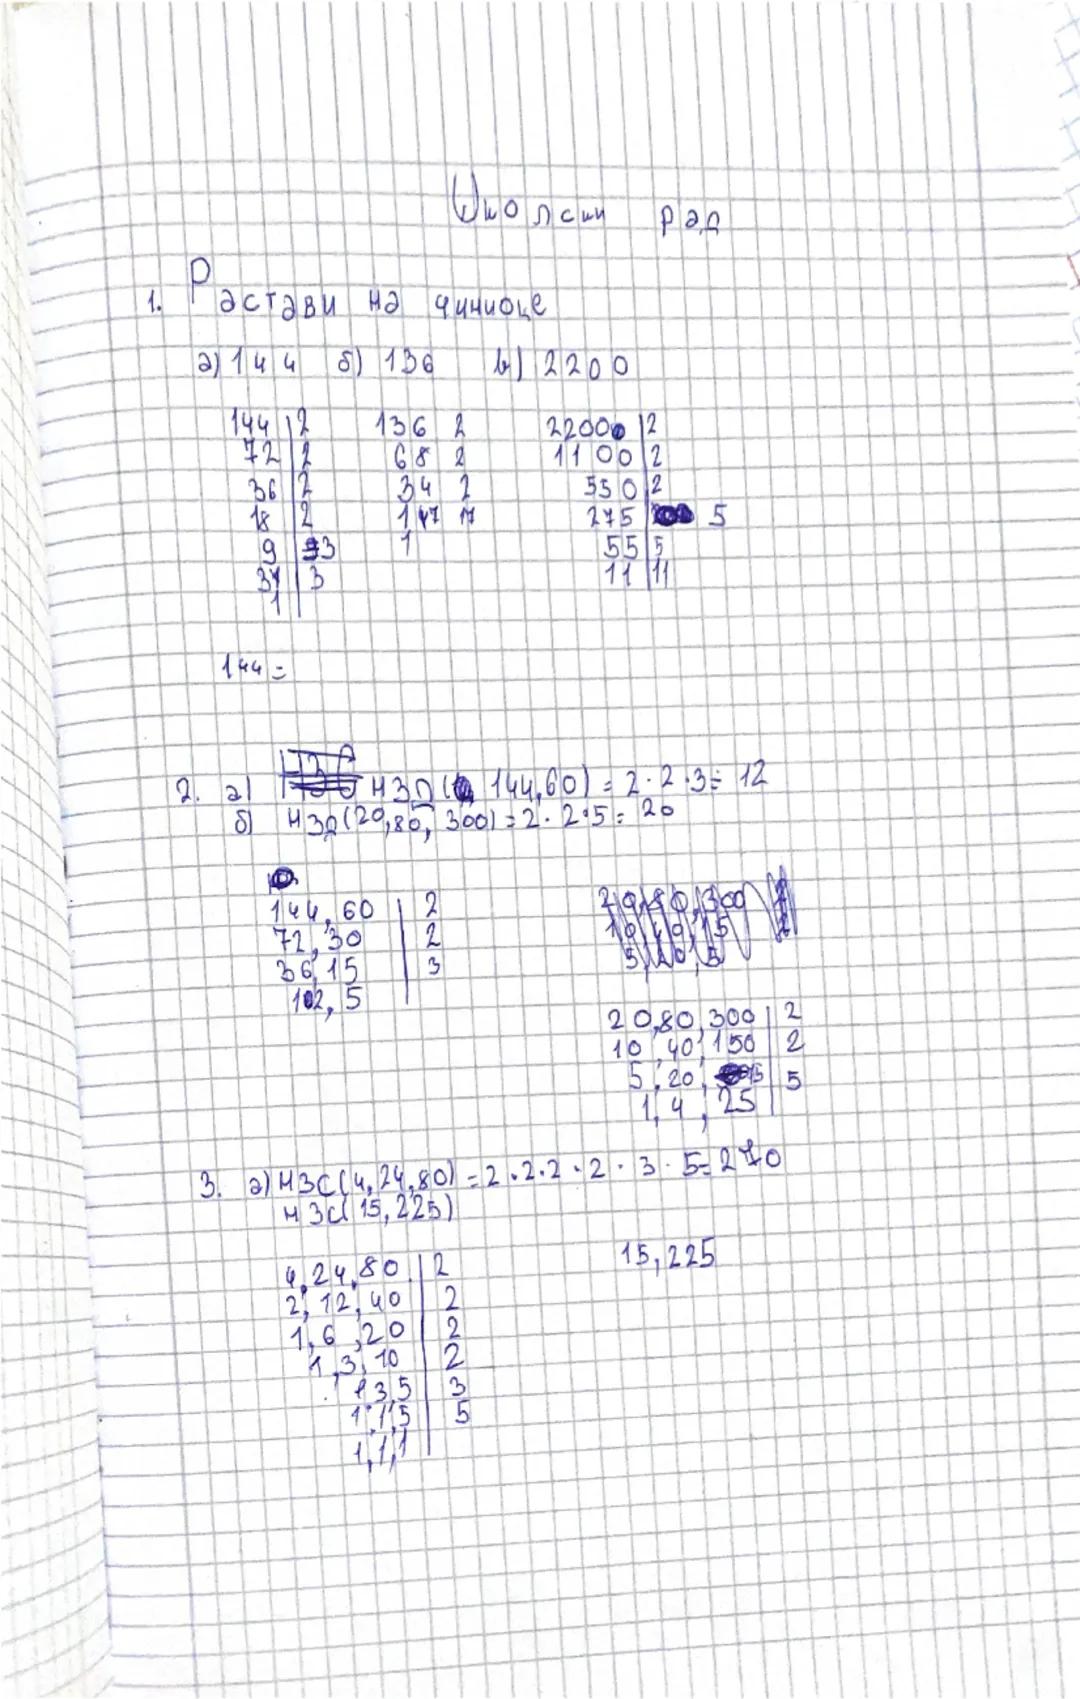 Школски рад
1. Растави на чиниоце
а) 144 б) 136 в) 2200
144 | 2 136 2 2200 | 2
72 | 2 68 2 1100 | 2
36 | 2 34 2 550 | 2
18 | 2 17 17 275 | 5
9 | 3 1 55 | 5
3 | 3 11 | 11
1
144 =
2. а) НЗД (144,60) = 2 · 2 · 3 = 12
б) НЗД (20,80, 300) = 2 · 2 · 5 = 20
144, 60 | 2
72, 30 | 2
36, 15 | 3
12, 5
20,80,300 | 2
10,40,150 | 2
5, 20, 75 | 5
1, 4, 25
3. а) НЗС (4,24,80) = 2 · 2 · 2 · 2 · 3 · 5 = 240
НЗС (15,225)
15,225
4,24,80 | 2
2, 12, 40 | 2
1, 6, 20 | 2
1, 3, 10 | 2
1,3,5 | 3
1,1,5 | 5
1,1,1